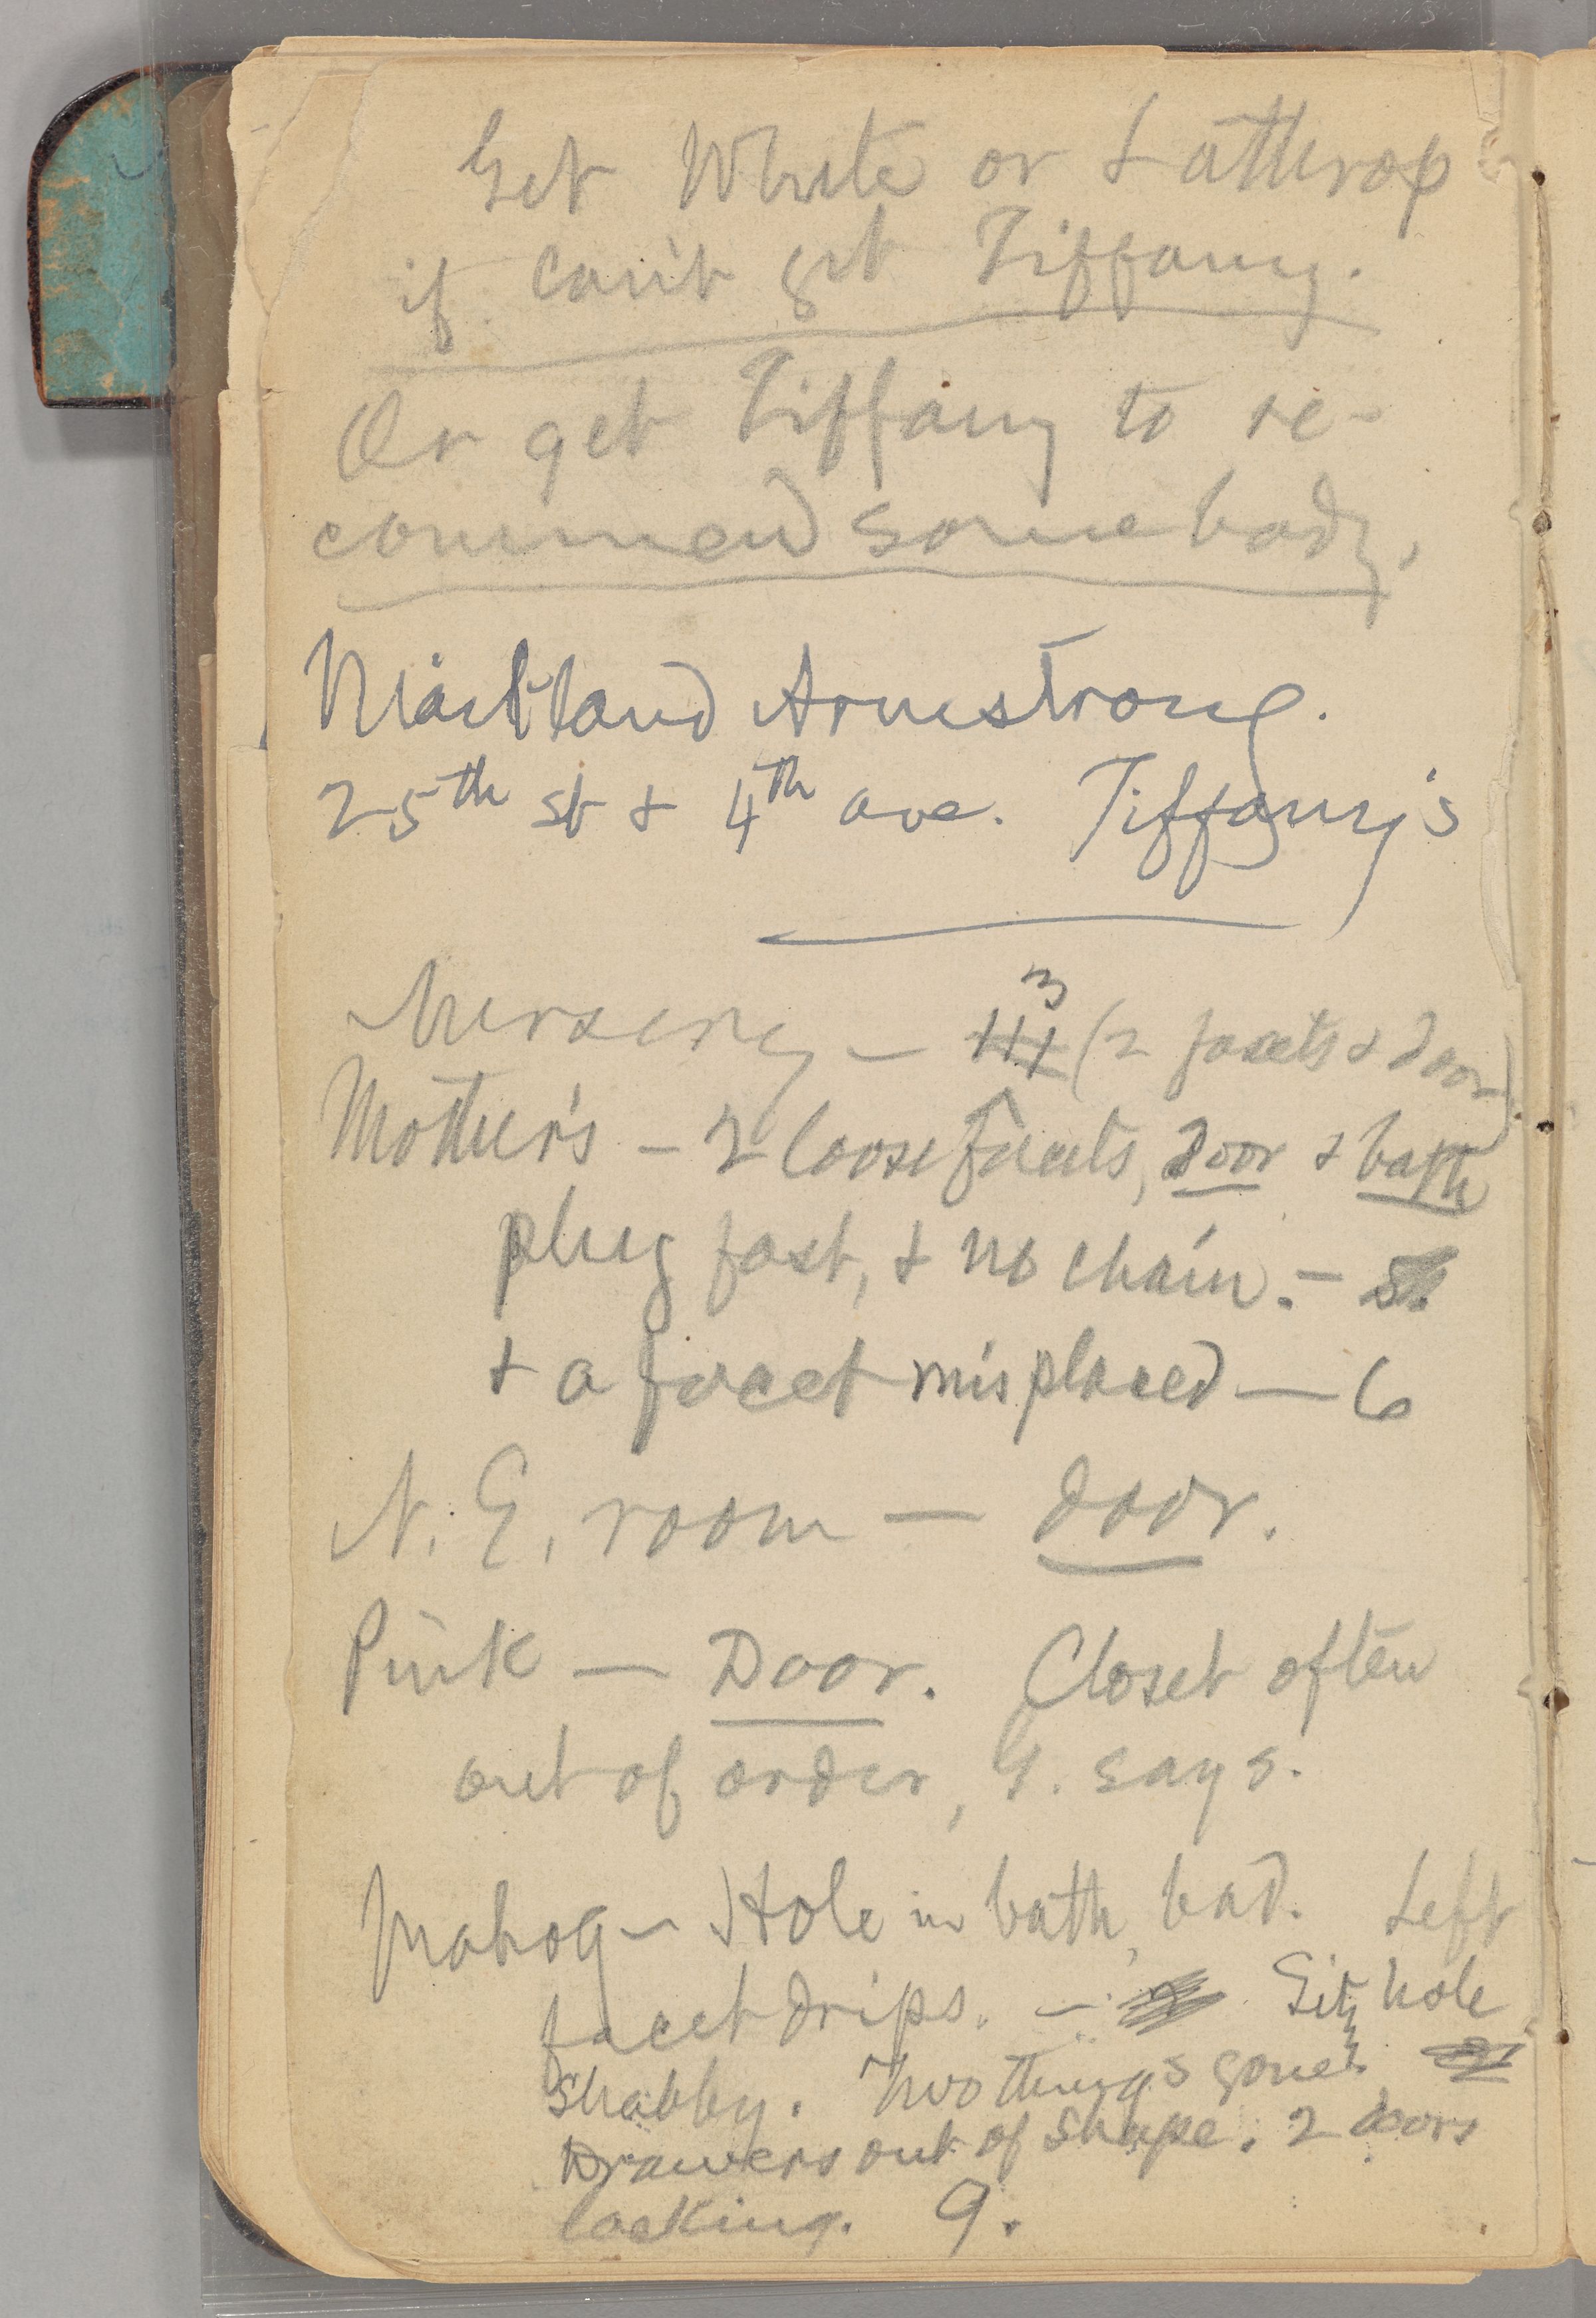 Get White or Lathrop
if can't get Tiffany.
Or get Tiffany to re-
commend somebody.
Maitland Armstrong.
25th st & 4th ave. Tiffany's
Nursery — 3 (2 facets & door)
Mother's — 2 loose facets, door & bath
plug fast, & no chain. —
& a facet misplaced — 6
N. E. room — door.
Pink — Door. Closet often
out of order, G. says.
Mahog — Hole in bath, bad. Left
facet drips. — Sitz hole
shabby. Two things gone.
Drawers out of shape. 2 doors
lacking. 9.